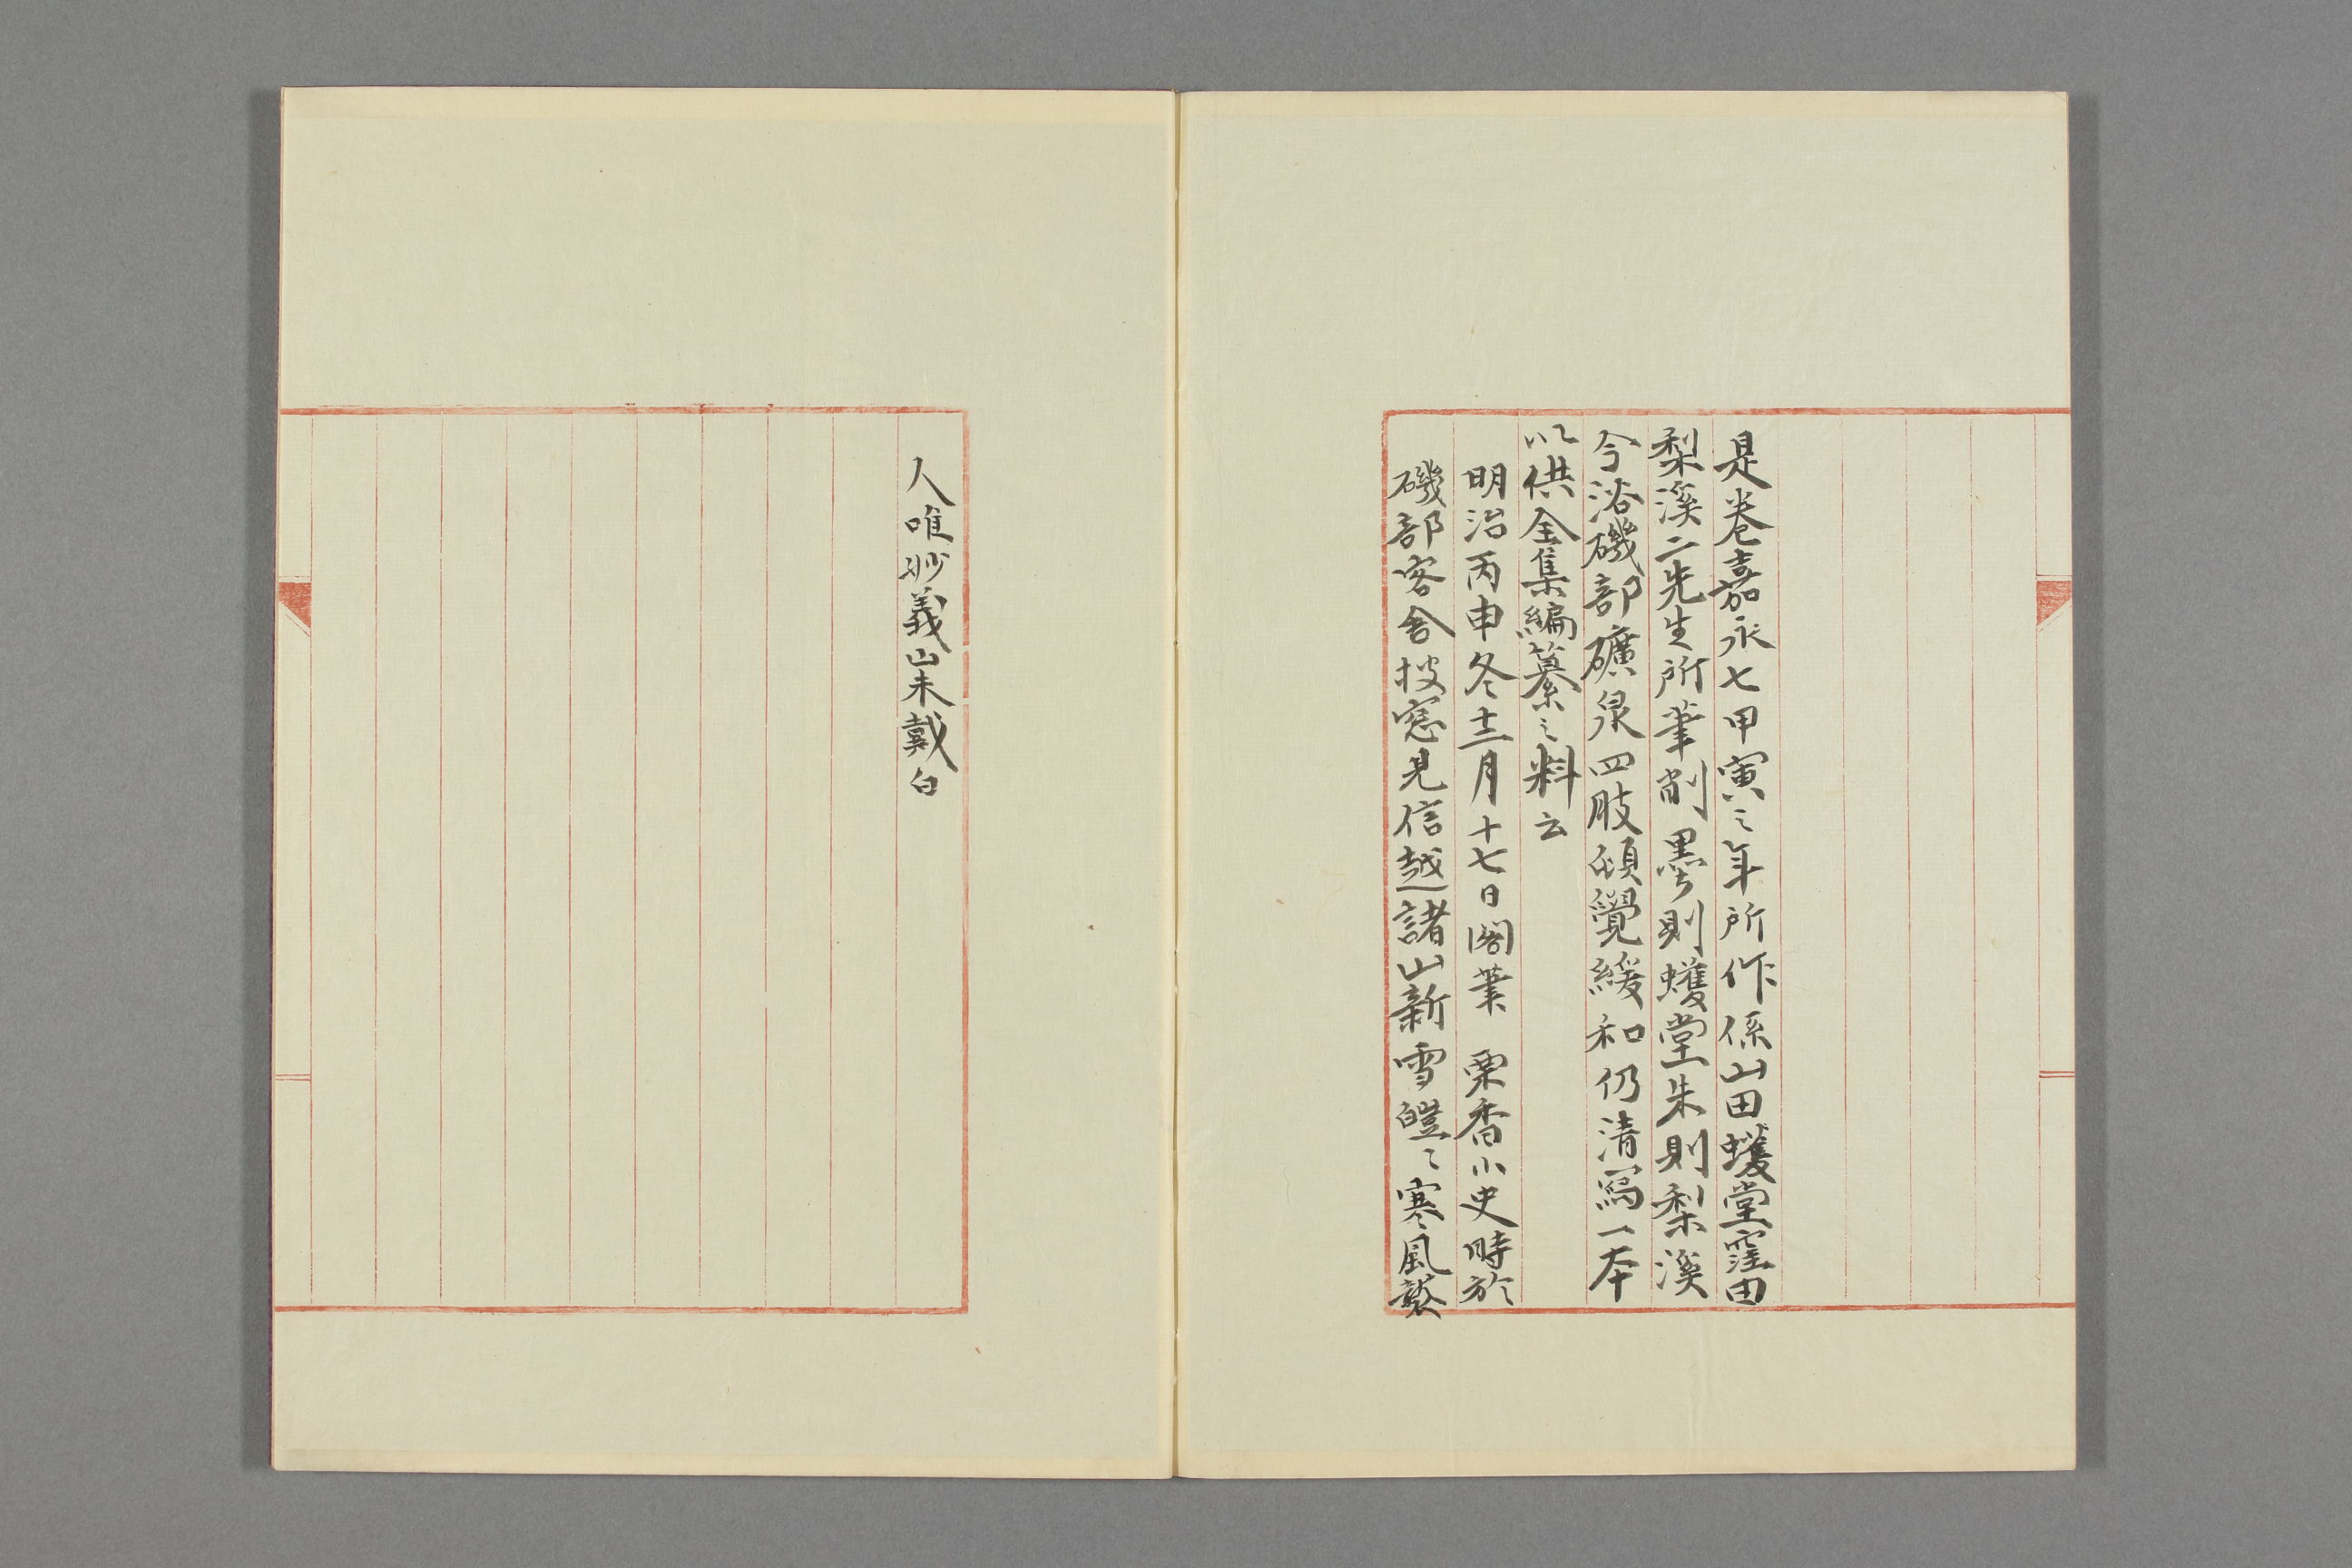 是卷嘉永七甲寅之年所作係山田蠖堂窪田
梨溪二先生所筆削墨則蠖堂朱則梨溪
今浴磯部礦泉四肢頓覺緩和仍清寫一本
以供全集編纂之料云
明治丙申冬十二月十七日閣筆 栗香小史時於
磯部客舍披窓見信越諸山新雪皚〻寒風襲
人唯妙義山未戴白